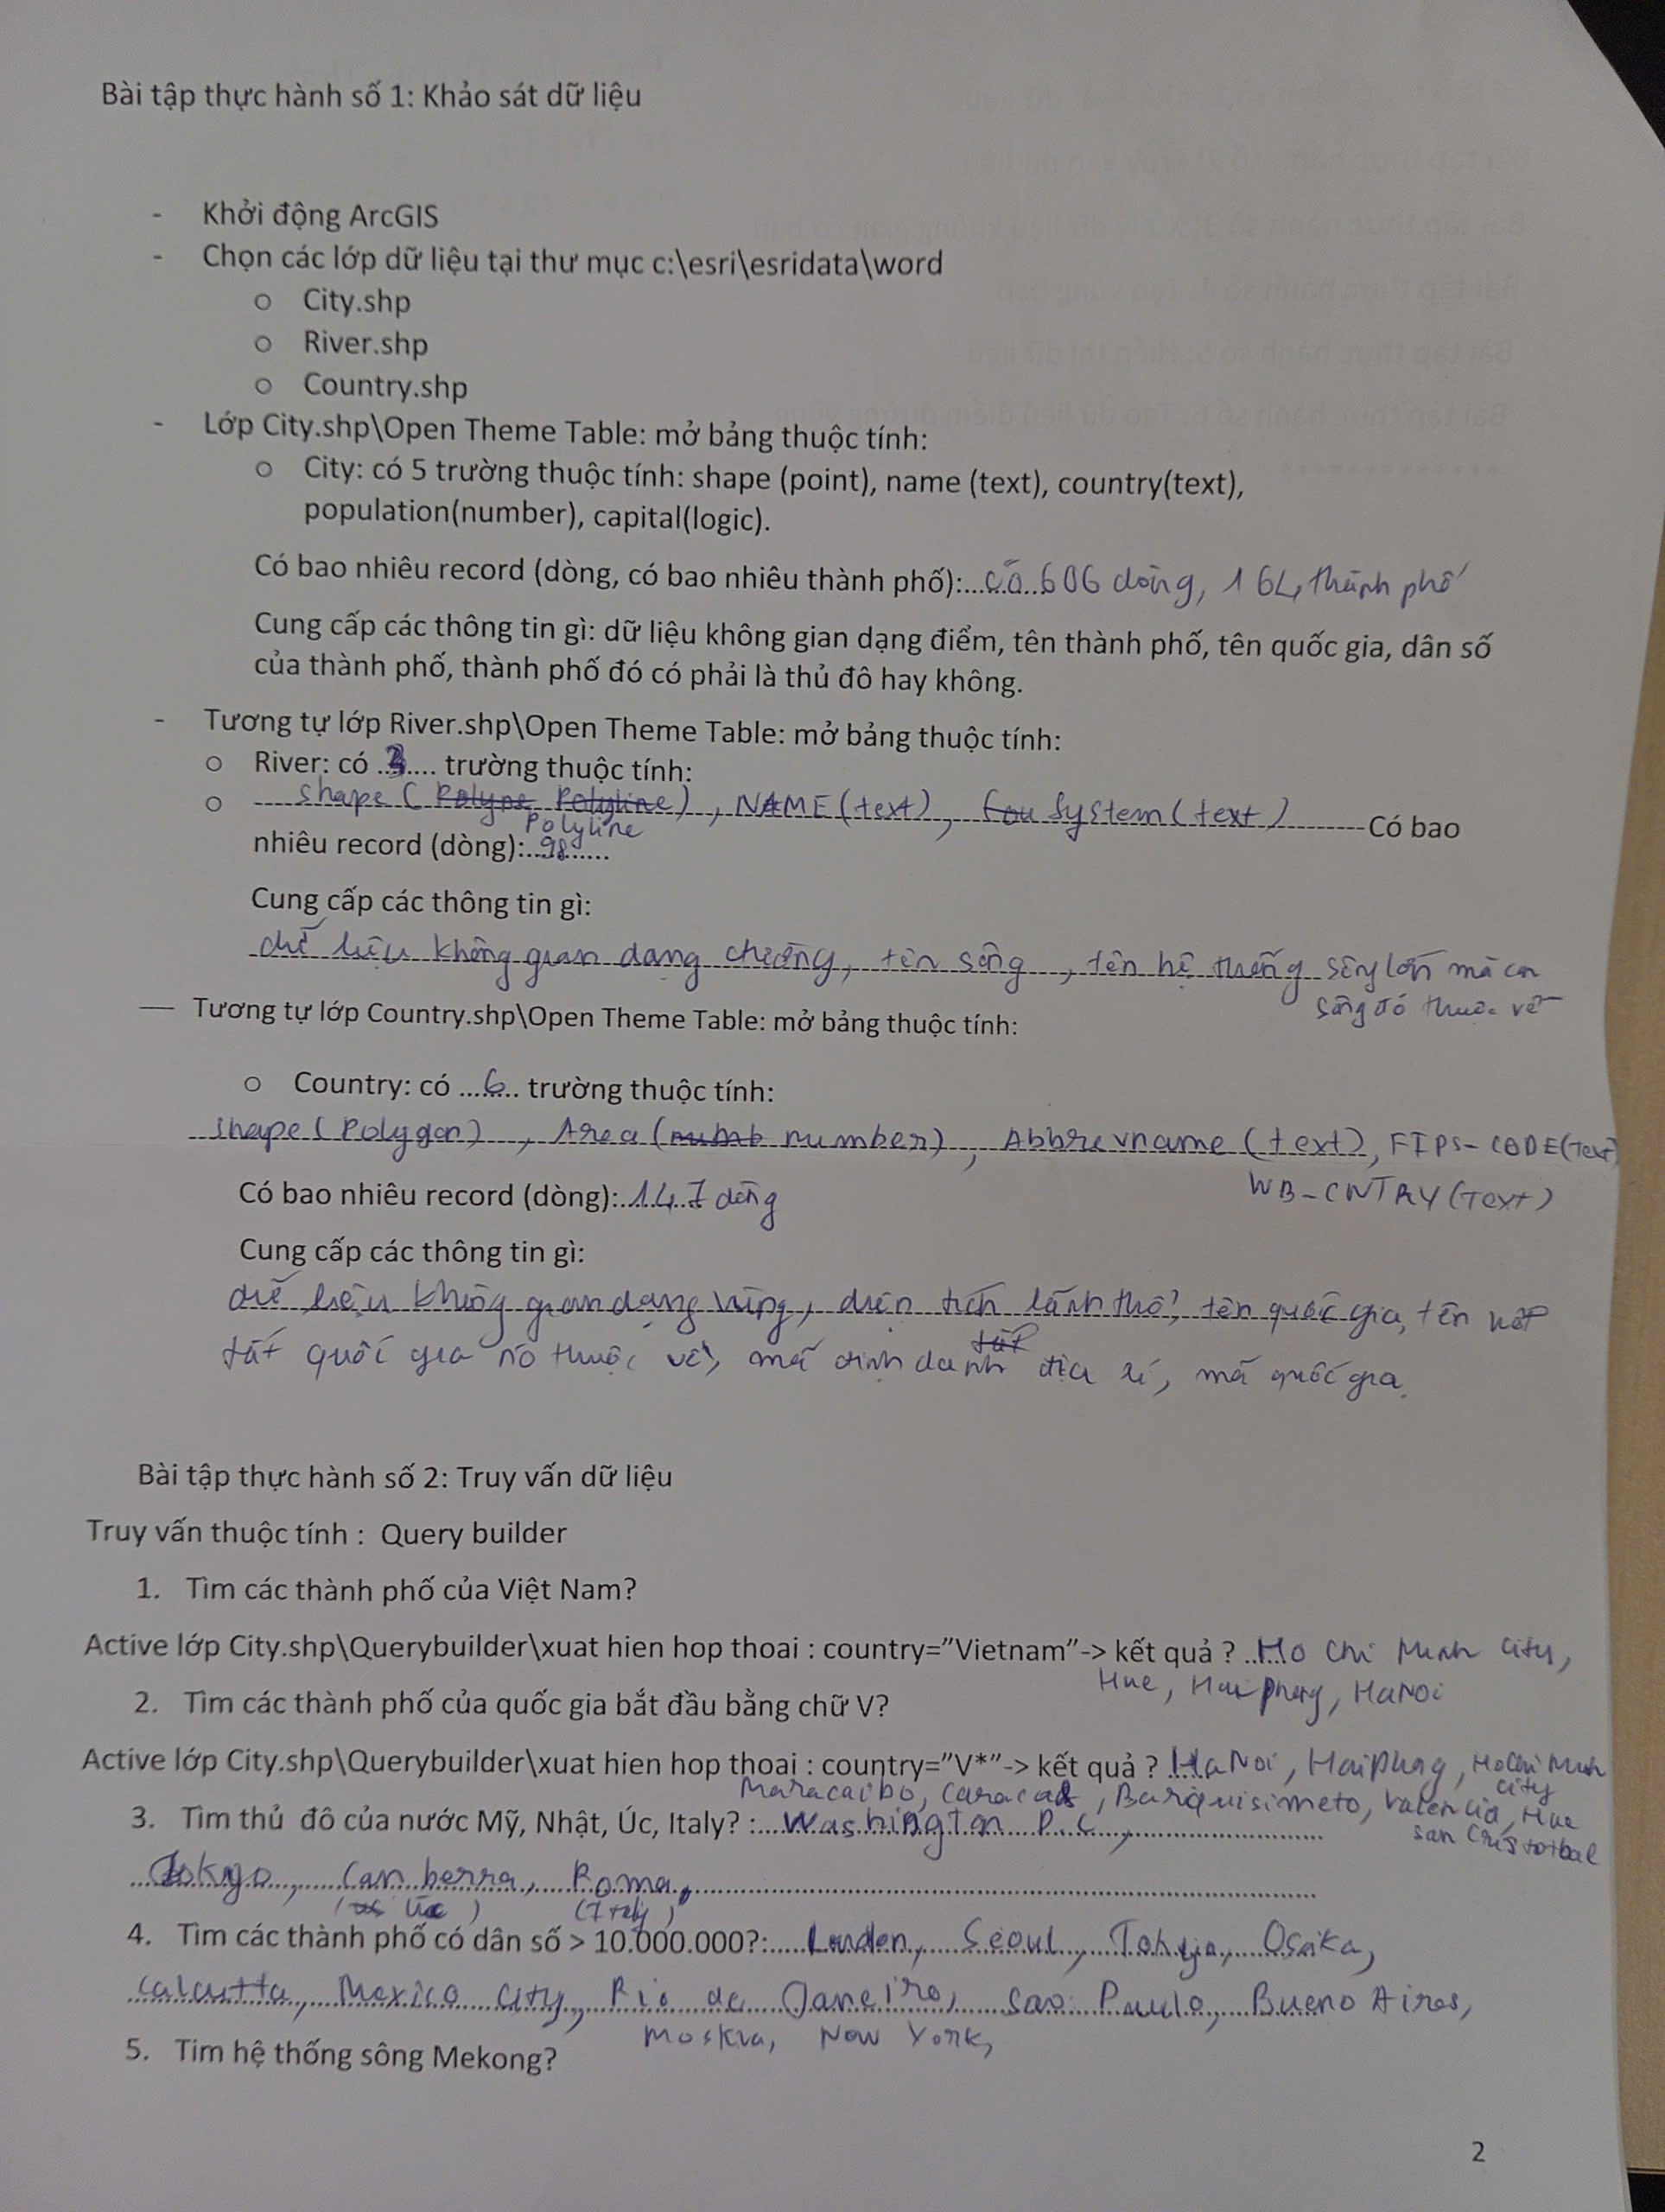 Bài tập thực hành số 1: Khảo sát dữ liệu
- Khởi động ArcGIS
- Chọn các lớp dữ liệu tại thư mục c:\esri\esridata\word
o City.shp
o River.shp
o Country.shp
- Lớp City.shp\Open Theme Table: mở bảng thuộc tính:
o City: có 5 trường thuộc tính: shape (point), name (text), country(text),
population(number), capital(logic).
Có bao nhiêu record (dòng, có bao nhiêu thành phố):....có 606 dòng, 164 thành phố
Cung cấp các thông tin gì: dữ liệu không gian dạng điểm, tên thành phố, tên quốc gia, dân số
của thành phố, thành phố đó có phải là thủ đô hay không.
- Tương tự lớp River.shp\Open Theme Table: mở bảng thuộc tính:
o River: có ..3.... trường thuộc tính:
o shape ( Polyline ) , NAME (text) , System (text) Có bao
nhiêu record (dòng):...98......
Cung cấp các thông tin gì:
dữ liệu không gian dạng đường, tên sông , tên hệ thống sông lớn mà con
sông đó thuộc về
— Tương tự lớp Country.shp\Open Theme Table: mở bảng thuộc tính:
o Country: có ...6... trường thuộc tính:
shape ( Polygon ) , Area ( number) , Abbrevname (text), FIPS-CODE(Text)
WB-CNTRY (Text)
Có bao nhiêu record (dòng):..147 dòng
Cung cấp các thông tin gì:
dữ liệu không gian dạng vùng, diện tích lãnh thổ, tên quốc gia, tên viết
tắt quốc gia nó thuộc về, mã định danh địa lí, mã quốc gia.
Bài tập thực hành số 2: Truy vấn dữ liệu
Truy vấn thuộc tính : Query builder
1. Tìm các thành phố của Việt Nam?
Active lớp City.shp\Querybuilder\xuat hien hop thoai : country=”Vietnam”-> kết quả ? ..Ho Chi Minh City,
Hue, Haiphong, HaNoi
2. Tìm các thành phố của quốc gia bắt đầu bằng chữ V?
Active lớp City.shp\Querybuilder\xuat hien hop thoai : country=”V*”-> kết quả ? HaNoi, Haiphong, Ho Chi Minh
city
Maracaibo, Caracas, Barquisimeto, Valencia, Hue
san Cristobal
3. Tìm thủ đô của nước Mỹ, Nhật, Úc, Italy? :....Washington D.C,
Tokyo, Canberra, Roma,
( Úc ) (Italy)
4. Tìm các thành phố có dân số > 10.000.000?:.....London, Seoul, Tokyo, Osaka,
Calcutta, Mexico City, Rio de Janeiro, Sao Paulo, Bueno Aires,
Moskva, New York,
5. Tìm hệ thống sông Mekong?
2